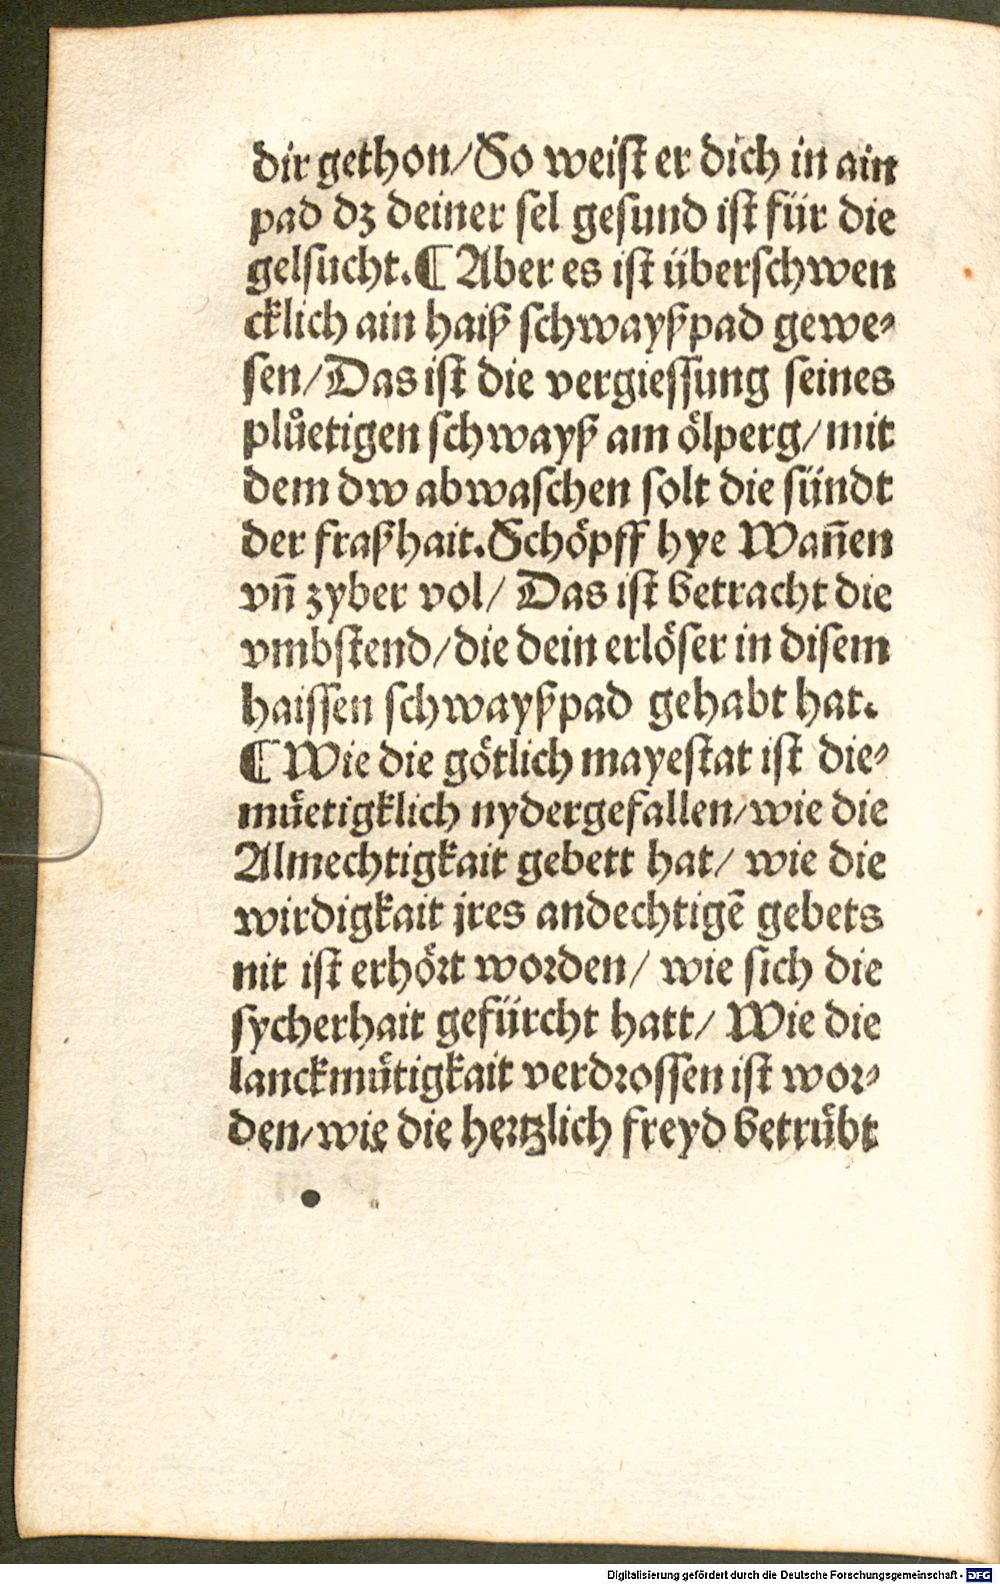 dir gethon/ So weiſt er dich in ain
pad dz deiner ſel geſund iſt für die
gelſucht. ¶ Aber es iſt überſchwen
cklich ain haiß ſchwayßpad gewe⸗
ſen/ Das iſt die vergieſſung ſeines
plůetigen ſchwayß am ölperg/ mit
dem dw abwaſchen ſolt die ſündt
der fraßhait. Schöpff hye Wañen
vñ zyber vol/ Das iſt betracht die
vmbſtend/ die dein erlöſer in diſem
haiſſen ſchwayßpad gehabt hat.
¶ Wie die götlich mayeſtat iſt die⸗
müetigklich nydergefallen/ wie die
Almechtigkait gebett hat/ wie die
wirdigkait jres andechtigē gebets
nit iſt erhört worden/ wie ſich die
ſycherhait gefürcht hatt/ Wie die
lanckmütigkait verdroſſen iſt wor⸗
den/ wie die hertzlich freyd betrübt
Digitalisierung gefördert durch die Deutsche Forschungsgemeinschaft - DFG